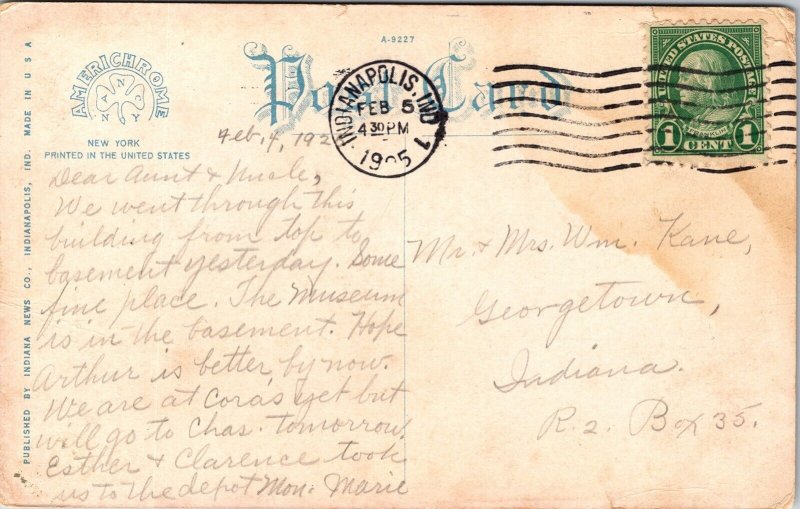 A-9227
Post Card
AMERICHROME
ANCO
NY
NEW YORK
PRINTED IN THE UNITED STATES
PUBLISHED BY INDIANA NEWS CO., INDIANAPOLIS, IND. MADE IN U S A
INDIANAPOLIS, IND.
FEB 5
4 30 PM
1
UNITED STATES POSTAGE
FRANKLIN
1 CENT 1
Feb. 4, 192
Dear Aunt & Uncle,
We went through this
building from top to
basement yesterday. Some
fine place. The Museum
is in the basement. Hope
Arthur is better by now.
We are at Cora's yet but
will go to Chas. tomorrow.
Esther & Clarence took
us to the depot Mon. Marie
Mr. & Mrs. Wm. Kane,
Georgetown,
Indiana.
R. 2. Box 35.